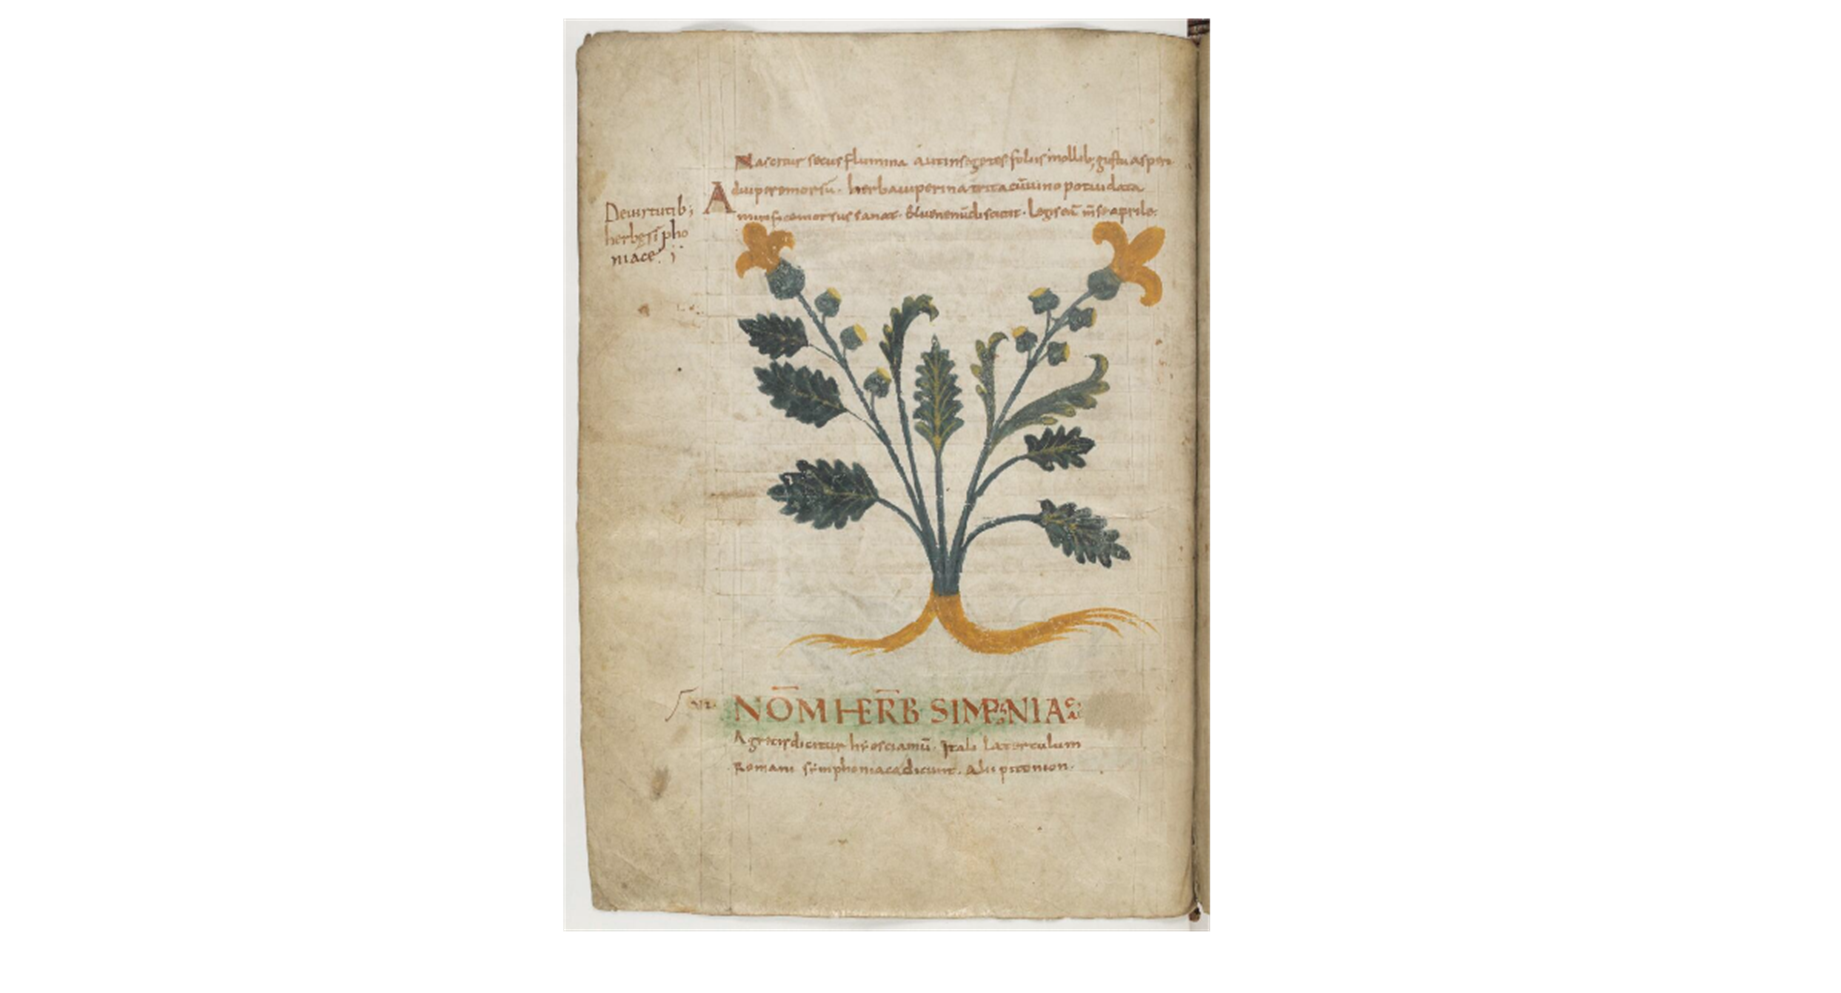 Nascitur secus flumina aut in segetes foliis mollib; gustu asperi
Ad viperę morsū. herba viperina trita cū vino potui data
mirifice morsus sanat. & venenū discutit. legis eā m̄se aprile.
De virtutib;
herbę sīpho
niace. i
NOM̄ HERB̄ SIMPHNIACA
A grecis dicitur hiosciamū. Itali laterculum
Romani simphoniaca dicunt. Alii pitonion.